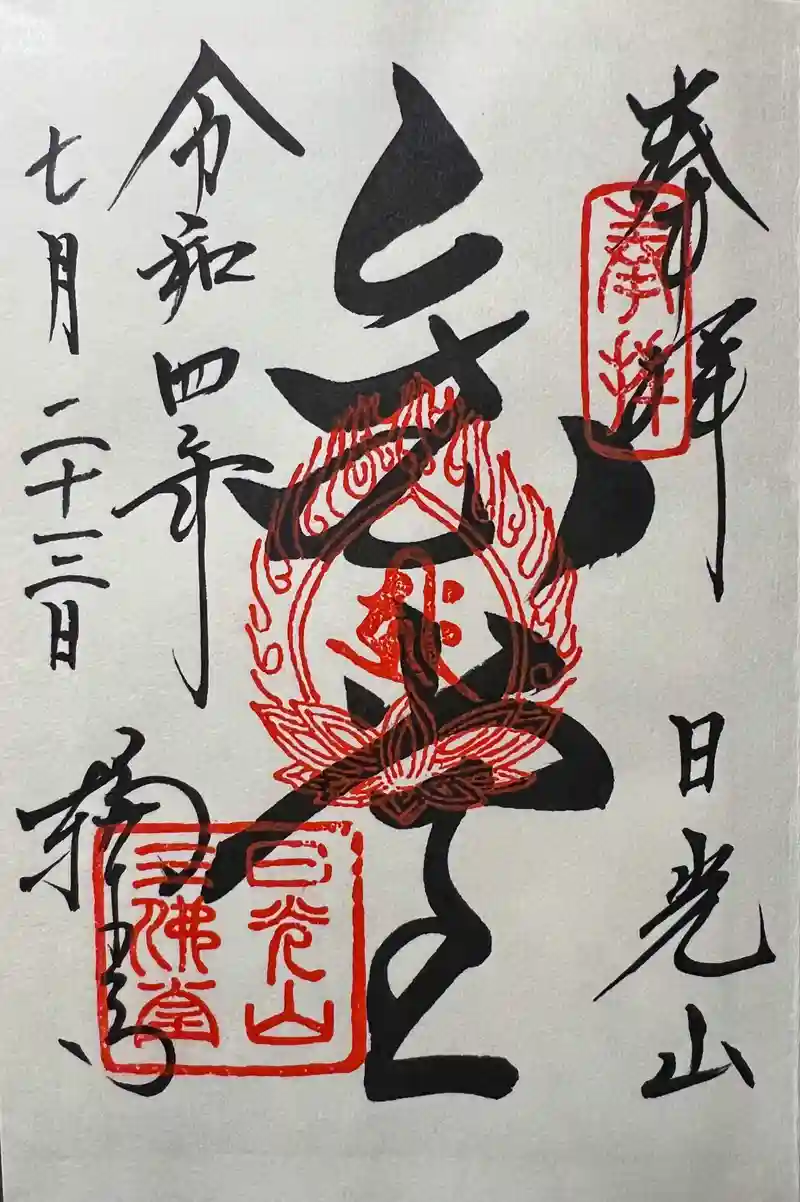 奉拝
奉拝
日光山
金堂
令和四年
七月二十三日
輪王寺
日光山
三佛堂